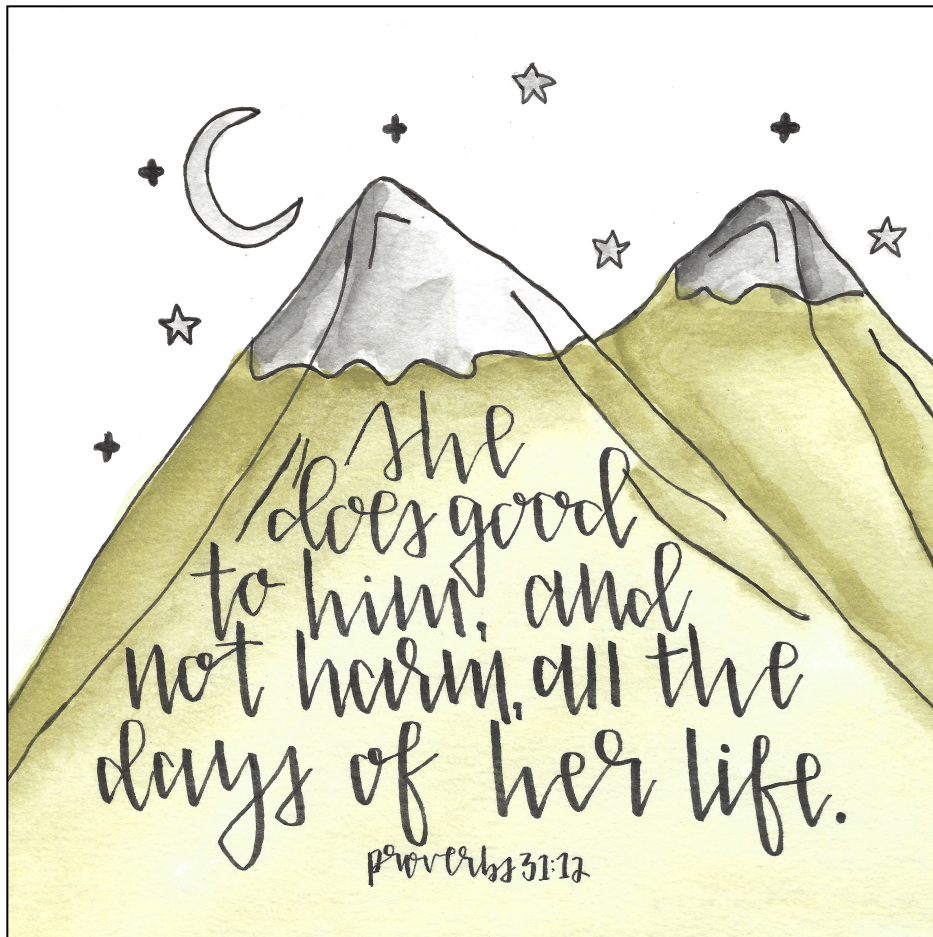 she
does good
to him, and
not harm, all the
days of her life.
proverbs 31:12